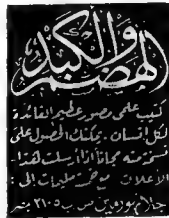 الهضم
والكبد
كتيب علمى مصور عظيم الفائدة
لكل إنسان. يمكنك الحصول على
نسخة منه مجانا إذا أرسلت هذا
الاعلان مع خمسة مليمات إلى :
ص ب ٢١٠٥ مصر